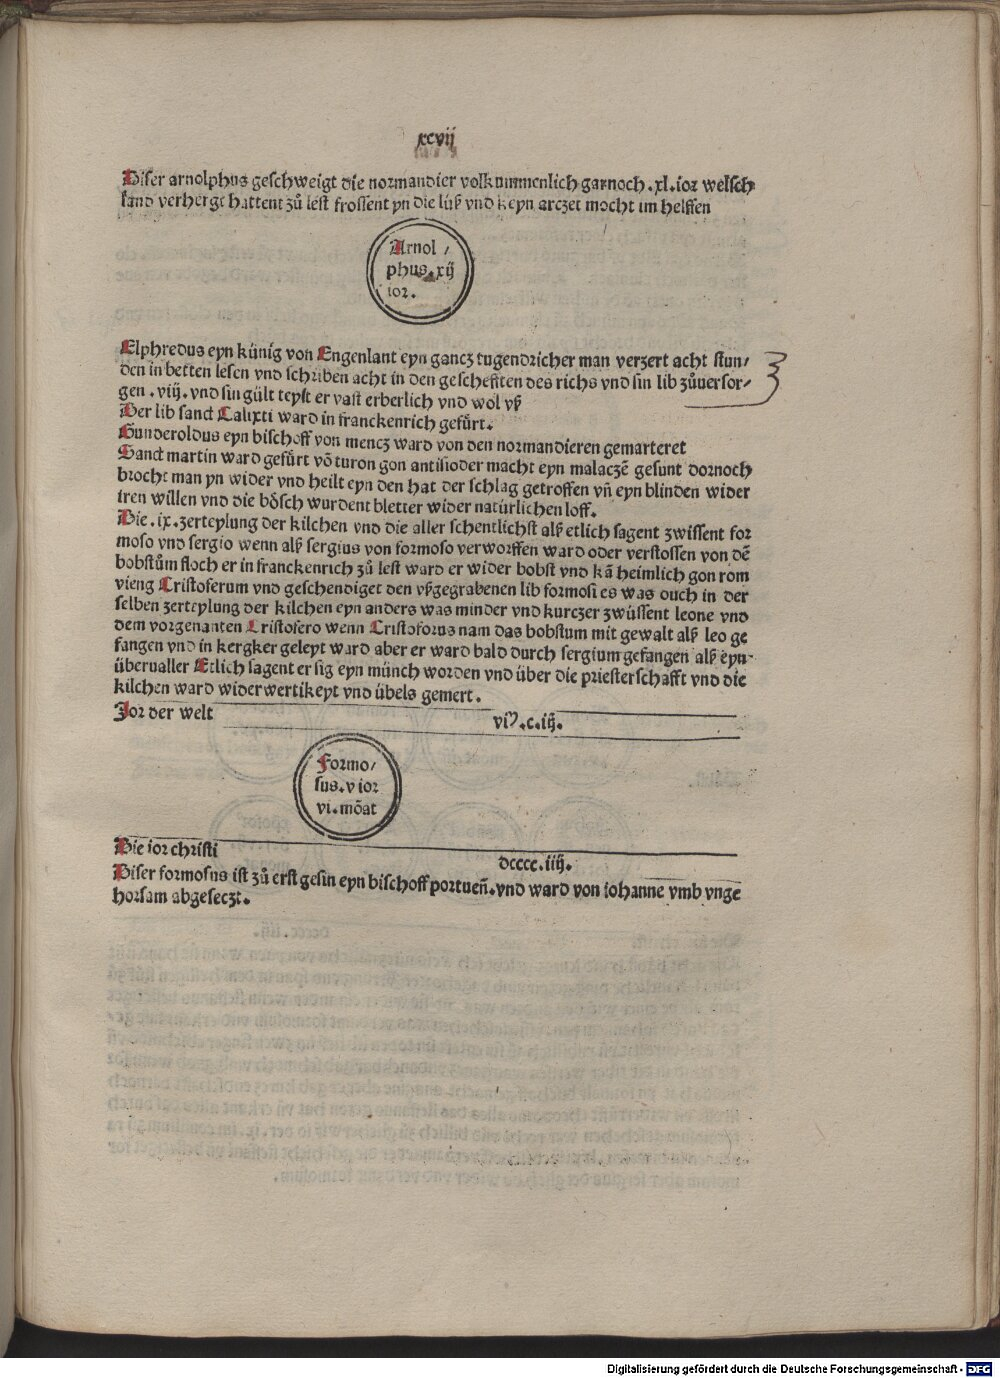 xcvij
Diser arnolphus geschweigt die normandier volkummenlich gar noch .xl. ior welsch
land verherget hattent zů lest frossent yn die lüß vnd keyn arczet mocht im helffen
Arnol/
phus.xij
ior.
Elphredus eyn künig von Engenlant eyn gancz tugendricher man verzert acht stun/
den in betten lesen vnd schriben acht in den gescheftten des richs vnd sin lib zůuersor/
gen .viij. vnd sin gült teylt er vast erberlich vnd wol vß
Der lib sanct Calixti ward in franckenrich gefürt.
Gunderoldus eyn bischoff von mencz ward von den normandieren gemarteret
Sanct martin ward gefürt võ turon gon antisioder macht eyn malaczẽ gesunt dornoch
brocht man yn wider vnd heilt eyn den hat der schlag getroffen vñ eyn blinden wider
iren willen vnd die bösch wurdent bletter wider natürlichen loff.
Die .ix. zerteylung der kilchen vnd die aller schentlichst alß etlich sagent zwissent for
moso vnd sergio wenn alß sergius von formoso verworffen ward oder verstossen von dẽ
bobstům floch er in franckenrich zů lest ward er wider bobst vnd kã heimlich gon rom
vieng Cristoferum vnd geschendiget den vßgegrabenen lib formosi es was ouch in der
selben zerteylung der kilchen eyn anders was minder vnd kurczer zwüssent leone vnd
dem vorgenanten Cristofero wenn Cristoforus nam das bobstum mit gewalt alß leo ge
fangen vnd in kergker geleyt ward aber er ward bald durch sergium gefangen alß eyn
überualler Etlich sagent er sig eyn münch worden vnd über die priesterschafft vnd die
kilchen ward widerwertikeyt vnd übels gemert.
Jor der welt vi⁹.c.iij.
Formo/
sus.v ior
vi.mõat
Die ior christi dcccc.iiij.
Diser formosus ist zů erst gesin eyn bischoff portueñ. vnd ward von iohanne vmb vnge
horsam abgeseczt.
Digitalisierung gefördert durch die Deutsche Forschungsgemeinschaft - DFG